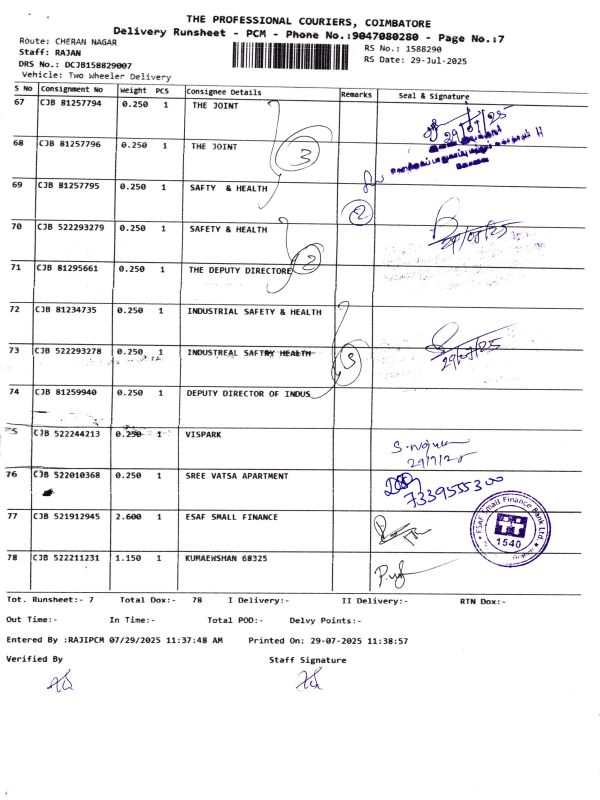 THE PROFESSIONAL COURIERS, COIMBATORE
Delivery Runsheet - PCM - Phone No.:9047080280 - Page No.:7
Route: CHERAN NAGAR RS No.: 1588290
Staff: RAJAN RS Date: 29-Jul-2025
DRS No.: DCJB158829007
Vehicle: Two Wheeler Delivery
S No Consignment No Weight PCS Consignee Details Remarks Seal & Signature
67 CJB 81257794 0.250 1 THE JOINT
29/07/25
68 CJB 81257796 0.250 1 THE JOINT
3
69 CJB 81257795 0.250 1 SAFTY & HEALTH
2
70 CJB 522293279 0.250 1 SAFETY & HEALTH
29/07/25
2
71 CJB 81295661 0.250 1 THE DEPUTY DIRECTORE
72 CJB 81234735 0.250 1 INDUSTRIAL SAFETY & HEALTH
73 CJB 522293278 0.250 1 INDUSTREAL SAFTRY HEALTH
3 29/07/25
74 CJB 81259940 0.250 1 DEPUTY DIRECTOR OF INDUS
75 CJB 522244213 0.250 1 VISPARK
29/7/25
76 CJB 522010368 0.250 1 SREE VATSA APARTMENT
7339555300
77 CJB 521912945 2.600 1 ESAF SMALL FINANCE
ESAF Small Finance Bank Ltd
1540
78 CJB 522211231 1.150 1 KUMAEWSHAN 68325
Tot. Runsheet:- 7 Total Dox:- 78 I Delivery:- II Delivery:- RTN Dox:-
Out Time:- In Time:- Total POD:- Delvy Points:-
Entered By :RAJIPCM 07/29/2025 11:37:48 AM Printed On: 29-07-2025 11:38:57
Verified By Staff Signature